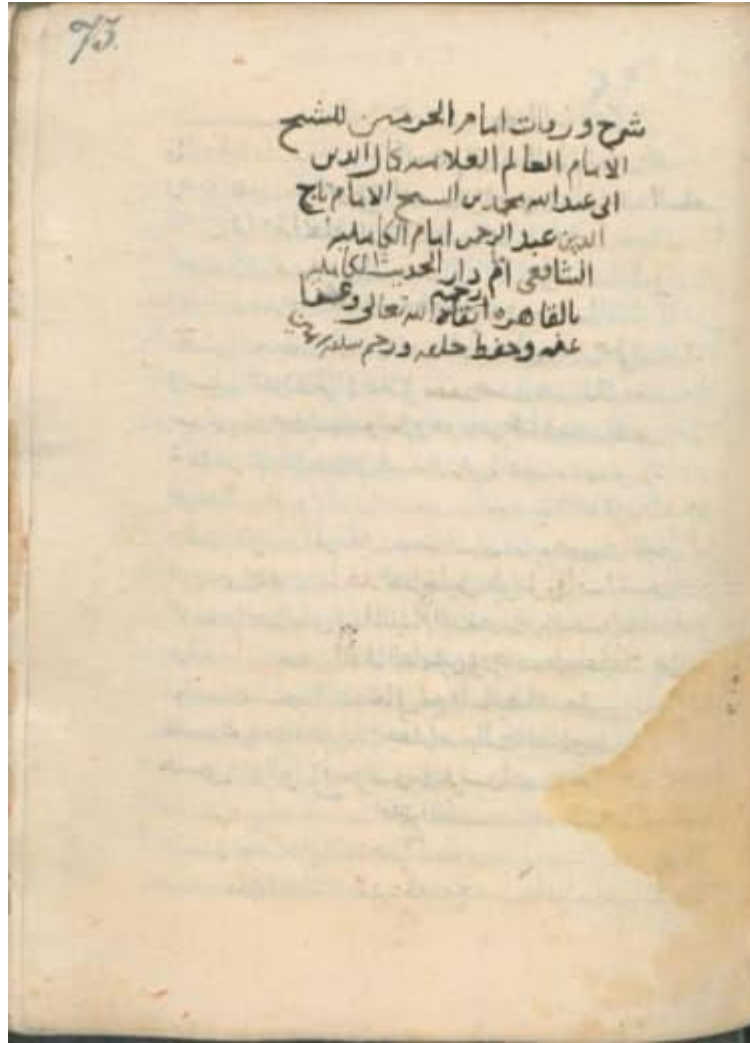 75.
شرح ورقات امام الحرمين للشيخ
الامام العالم العلامه كمال الدين
ابى عبد الله محمد بن الشيخ الامام تاج
الدين عبد الرحمن امام الكامليه
الشافعى ام دار الحديث الكامليه
رحمه
بالقاهره ابقاه الله تعالى وعفا
عنه وحفظ خلفه ورحم سلفه